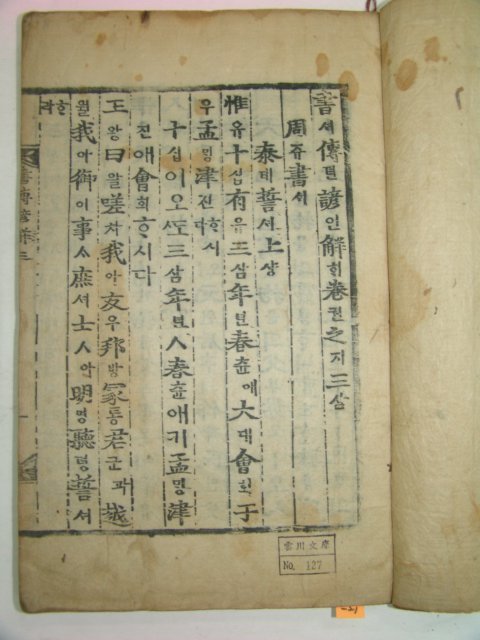 書셔傳뎐諺언解ᄒᆡ卷권之지三삼
周쥬書셔
泰태誓셔上샹
惟유十십有유三삼年년春츈애大대會회于
우孟ᄆᆡᆼ津진ᄒᆞ시다
十십이오ᄯᅩ三삼年년ㅅ春츈애기孟ᄆᆡᆼ津
진애會회ᄒᆞ시다
王왕曰왈嗟차我아友우邦방冢통君군과越
월我아御어事ᄉᆞ庶셔士ᄉᆞ아明명聽텽誓셔
ᄒᆞ라
書傳諺解三
雲川文庫
No. 127